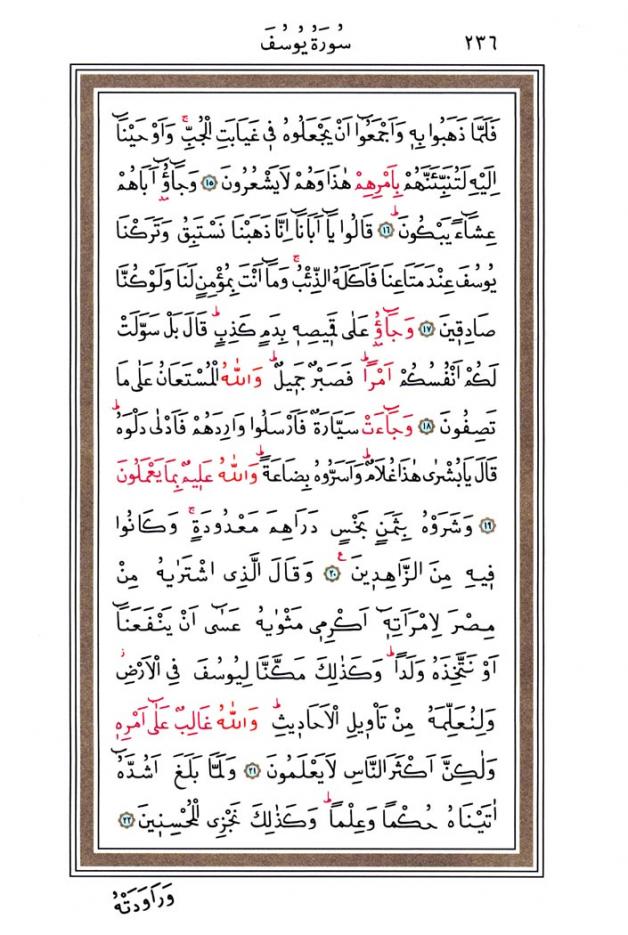 ٢٣٦ سُورَةُ يُوسُفَ
فَلَمَّا ذَهَبُوا بِهٖ وَاَجْمَعُٓوا اَنْ يَجْعَلُوهُ فٖى غَيَابَتِ الْجُبِّۚ وَاَوْحَيْنَٓا
اِلَيْهِ لَتُنَبِّئَنَّهُمْ بِاَمْرِهِمْ هٰذَا وَهُمْ لَا يَشْعُرُونَ ﴿١٥﴾ وَجَٓاؤُٓ اَبَاهُمْ
عِشَٓاءً يَبْكُونَۜ ﴿١٦﴾ قَالُوا يَٓا اَبَانَٓا اِنَّا ذَهَبْنَا نَسْتَبِقُ وَتَرَكْنَا
يُوسُفَ عِنْدَ مَتَاعِنَا فَاَكَلَهُ الذِّئْبُۚ وَمَٓا اَنْتَ بِمُؤْمِنٍ لَنَا وَلَوْ كُنَّا
صَادِقٖينَ ﴿١٧﴾ وَجَٓاؤُ عَلٰى قَمٖيصِهٖ بِدَمٍ كَذِبٍۜ قَالَ بَلْ سَوَّلَتْ
لَكُمْ اَنْفُسُكُمْ اَمْرًاۜ فَصَبْرٌ جَمٖيلٌۜ وَاللّٰهُ الْمُسْتَعَانُ عَلٰى مَا
تَصِفُونَ ﴿١٨﴾ وَجَٓاءَتْ سَيَّارَةٌ فَاَرْسَلُوا وَارِدَهُمْ فَاَدْلٰى دَلْوَهُۜ
قَالَ يَا بُشْرٰى هٰذَا غُلَامٌۜ وَاَسَرُّوهُ بِضَاعَةًۜ وَاللّٰهُ عَلٖيمٌ بِمَا يَعْمَلُونَ
﴿١٩﴾ وَشَرَوْهُ بِثَمَنٍ بَخْسٍ دَرَاهِمَ مَعْدُودَةٍۚ وَكَانُوا
فٖيهِ مِنَ الزَّاهِدٖينَ ع ﴿٢٠﴾ وَقَالَ الَّذِى اشْتَرٰيهُ مِنْ
مِصْرَ لِامْرَاَتِهٖٓ اَكْرِمٖى مَثْوٰيهُ عَسٰٓى اَنْ يَنْفَعَنَٓا
اَوْ نَتَّخِذَهُ وَلَدًاۜ وَكَذٰلِكَ مَكَّنَّا لِيُوسُفَ فِى الْاَرْضِؗ
وَلِنُعَلِّمَهُ مِنْ تَاْوٖيلِ الْاَحَادٖيثِۜ وَاللّٰهُ غَالِبٌ عَلٰٓى اَمْرِهٖ
وَلٰكِنَّ اَكْثَرَ النَّاسِ لَا يَعْلَمُونَ ﴿٢١﴾ وَلَمَّا بَلَغَ اَشُدَّهُٓ
اٰتَيْنَاهُ حُكْمًا وَعِلْمًاۜ وَكَذٰلِكَ نَجْزِى الْمُحْسِنٖينَ ﴿٢٢﴾
وَرَاوَدَتْهُ